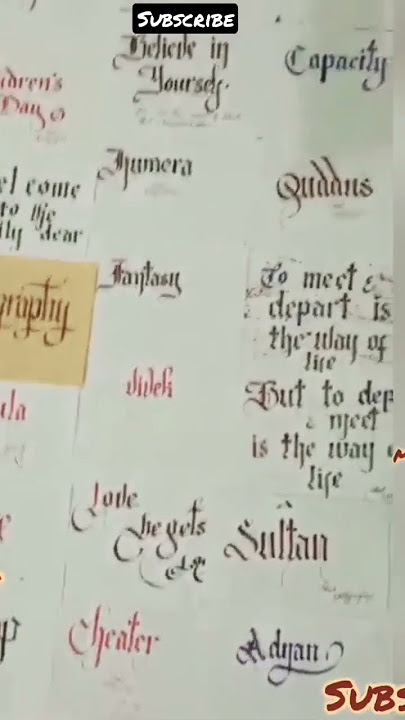 SUBSCRIBE
Believe in
Yourself.
Capacity
ldren's
Day
Humera
Quddus
el come
to the
ily dear
Fantasy
To meet &
depart is
the way of
life
But to dep
meet
is the way
life
graphy
ula
Love
begets
Sultan
Cheater
Adyan
SUBS